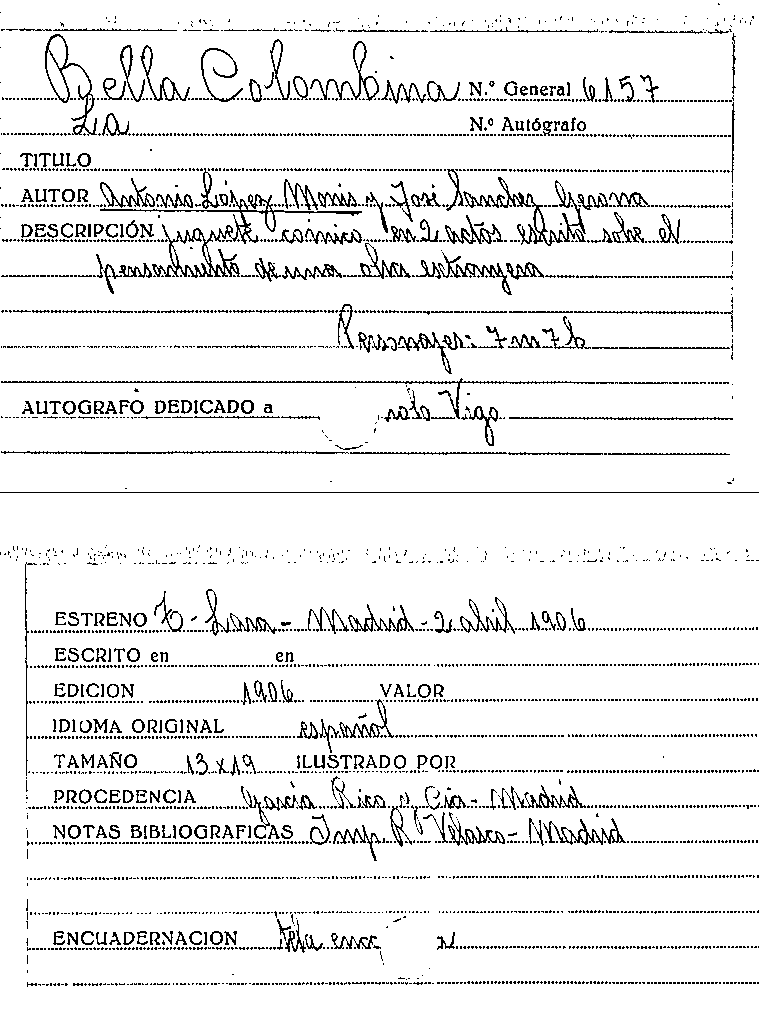 Bella Colombina N.º General 6157
La N.º Autógrafo
TITULO
AUTOR Antonio López Monis y José Sanchez Gerona
DESCRIPCIÓN juguete cómico en 2 actos escrito sobre el
pensamiento de una obra extranjera
Personajes: 7 m 7 h
AUTOGRAFO DEDICADO a solo Vigo
ESTRENO T. Lara - Madrid - 2 abril 1906
ESCRITO en en
EDICION 1906 VALOR
IDIOMA ORIGINAL español
TAMAÑO 13 x 19 ILUSTRADO POR
PROCEDENCIA García Rico y Cia - Madrid
NOTAS BIBLIOGRAFICAS Imp. R. Velasco - Madrid
ENCUADERNACION tela